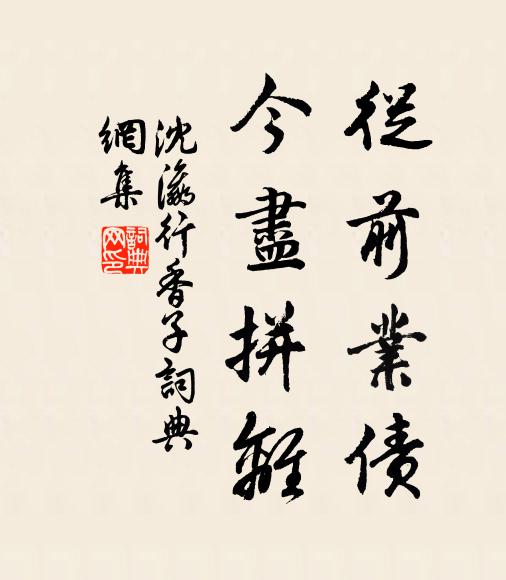 從前業債
今盡拼離
沈瀛行香子詞典
網集
詞典網印